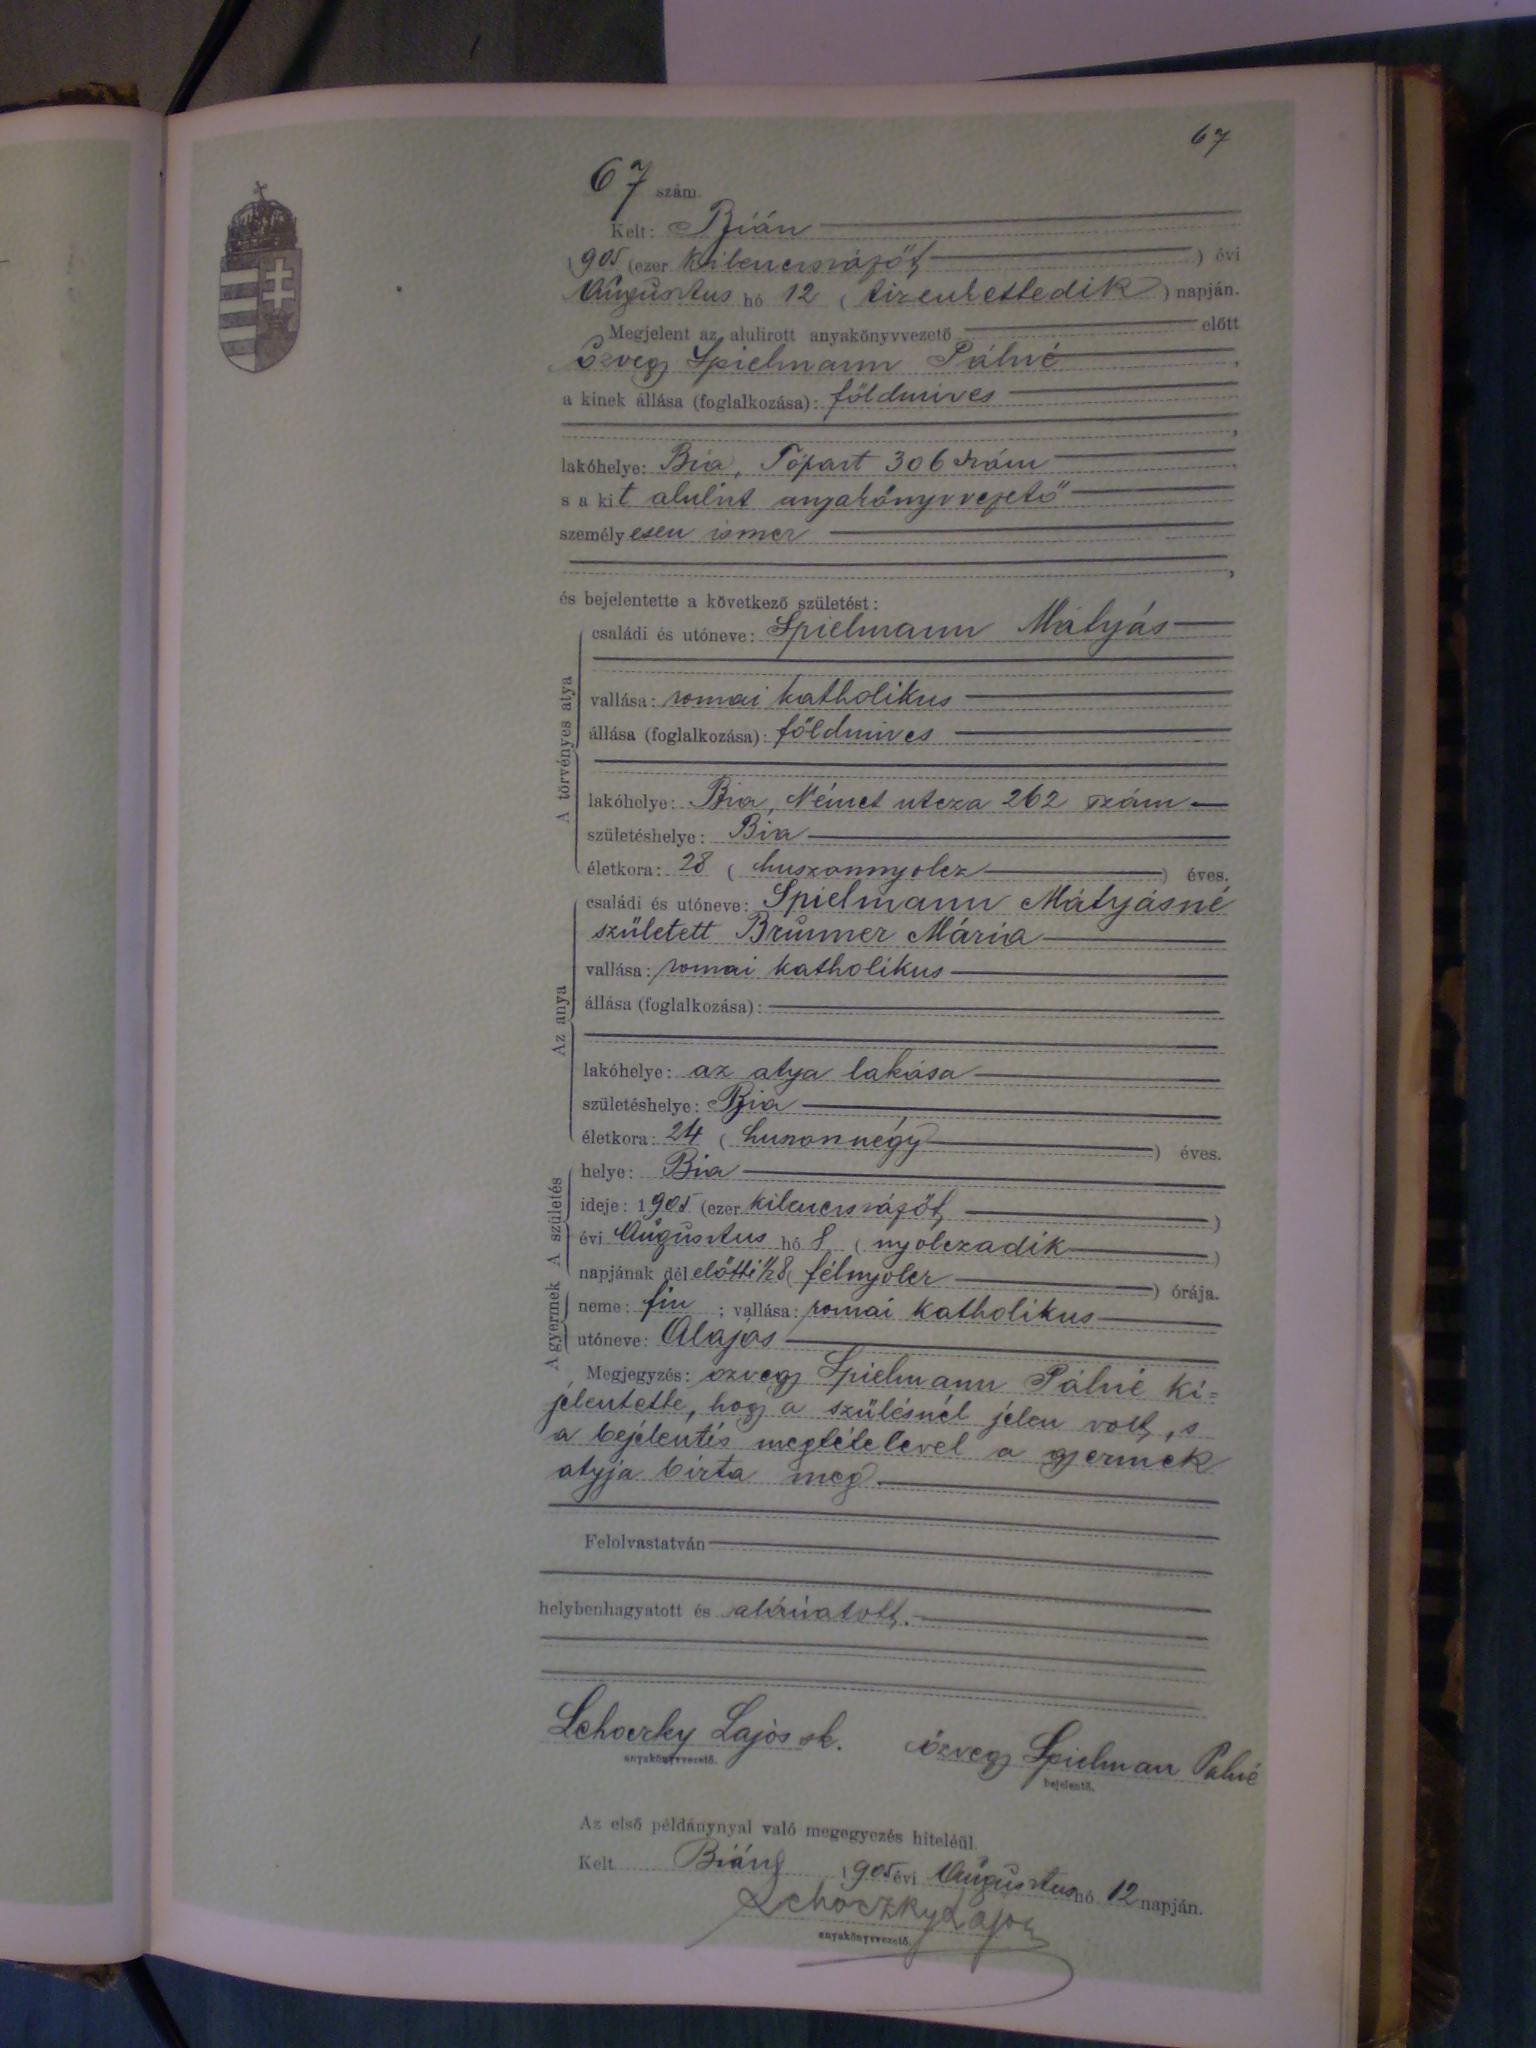 67
67 szám.
Kelt: Bián
1905 (ezer kilenczszázöt) évi
Augusztus hó 12 (tizenkettedik) napján.
Megjelent az alulirott anyakönyvvezető előtt
özvegy Spielmann Pálné,
a kinek állása (foglalkozása): földmives
lakóhelye: Bia, Tópart 306 szám
s a kit alulirt anyakönyvvezető
személyesen ismer,
és bejelentette a következő születést:
A törvényes atya
családi és utóneve: Spielmann Mátyás
vallása: romai katholikus
állása (foglalkozása): földmives
lakóhelye: Bia, Német utcza 262 szám
születéshelye: Bia
életkora: 28 (huszonnyolcz) éves.
Az anya
családi és utóneve: Spielmann Mátyásné
született Brunner Mária
vallása: romai katholikus
állása (foglalkozása):
lakóhelye: az atya lakása
születéshelye: Bia
életkora: 24 (huszonnégy) éves.
A születés
helye: Bia
ideje: 1905 (ezer kilenczszázöt)
évi Augusztus hó 8 (nyolczadik)
napjának dél előtti 1/2 8 (félnyolcz) órája.
A gyermek
neme: fiu; vallása: romai katholikus
utóneve: Alajos
Megjegyzés: özvegy Spielmann Pálné ki=
jelentette, hogy a szülésnél jelen volt, s
a bejelentés megtételével a gyermek
atyja bizta meg
Felolvastatván
helybenhagyatott és aláiratott.
Lehoczky Lajos sk. özvegy Spielman Palné
anyakönyvvezető. bejelentő.
Az első példánynyal való megegyezés hiteléül.
Kelt Bián, 1905 évi Augusztus hó 12 napján.
Lehoczky Lajos
anyakönyvvezető.